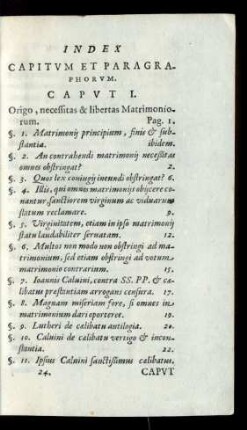 INDEX
CAPITVM ET PARAGRA-
PHORVM.
CAPVT I.
Origo, necessitas & libertas Matrimonio-
rum. Pag. 1.
§. 1. Matrimonij principium, finis & sub-
stantia. ibidem.
§. 2. An contrahendi matrimonij necessitas
omnes obstringat? 2.
§. 3. Quos lex coniugij ineundi obstringat? 6.
§. 4. Illis, qui omnes matrimonijs obijcere co-
nantur sanctiorem virginum ac viduarum
statum reclamare. 9.
§. 5. Virginitatem, etiam in ipso matrimonij
statu laudabiliter seruatam. 12.
§. 6. Multos non modo non obstringi ad ma-
trimonium, sed etiam obstringi ad votum
matrimonio contrarium. 15.
§. 7. Ioannis Caluini, contra SS. PP. & cæ-
libatus præstantiam arrogans censura. 17.
§. 8. Magnam miseriam fore, si omnes in
matrimonium dari oporteret. 19.
§. 9. Lutheri de cælibatu antilogia. 20.
§. 10. Caluini de cælibatu vertigo & incon-
stantia. 22.
§. 11. Ipsius Caluini sanctissimus cælibatus.
24. CAPVT